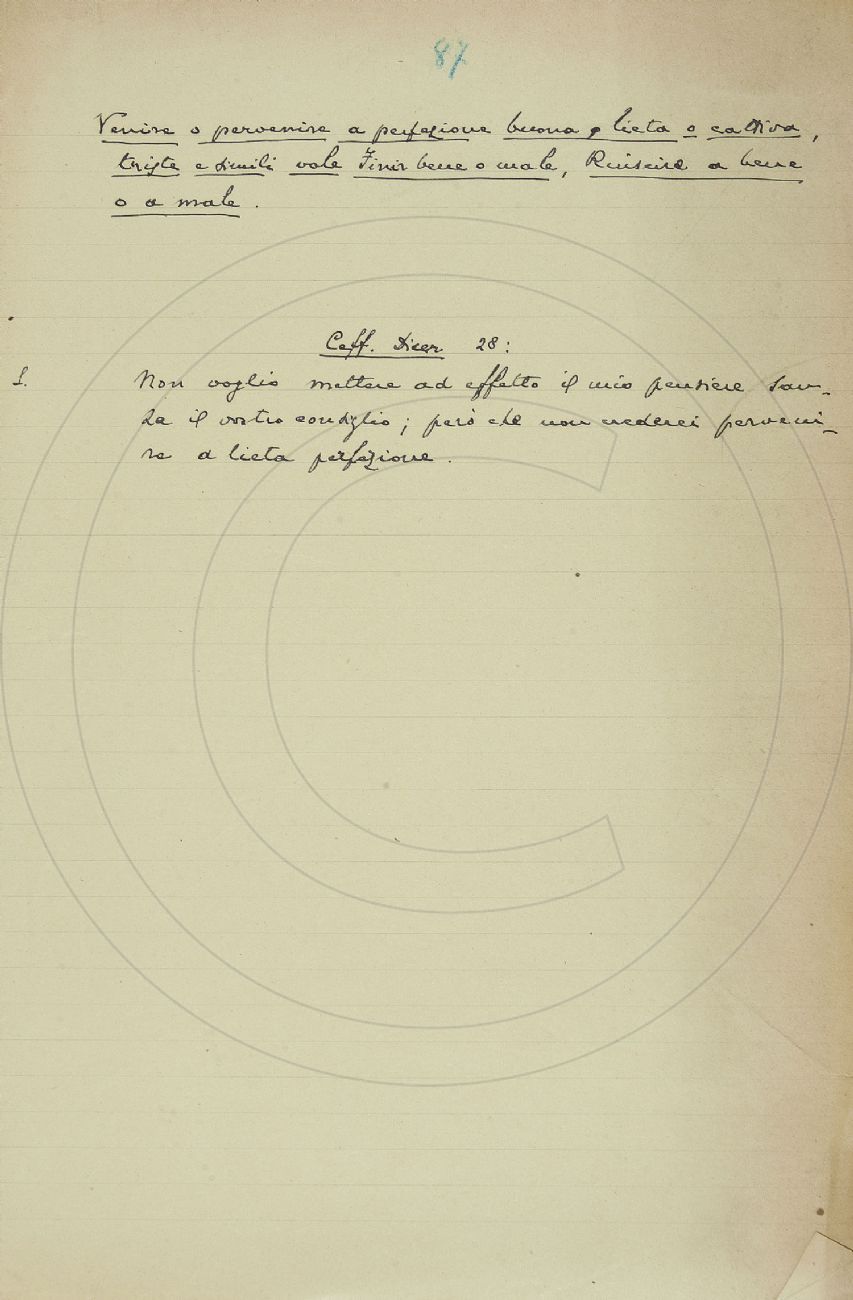 87
Venire o pervenire a perfezione buona, lieta o cattiva,
triste e simili vale Finir bene o male, Riuscire a bene
o a male.
Ceff. Dicer 28:
1. Non voglio mettere ad effetto il mio pensiere san-
za il vostro consiglio; però che non crederei perveni-
re a lieta perfezione.